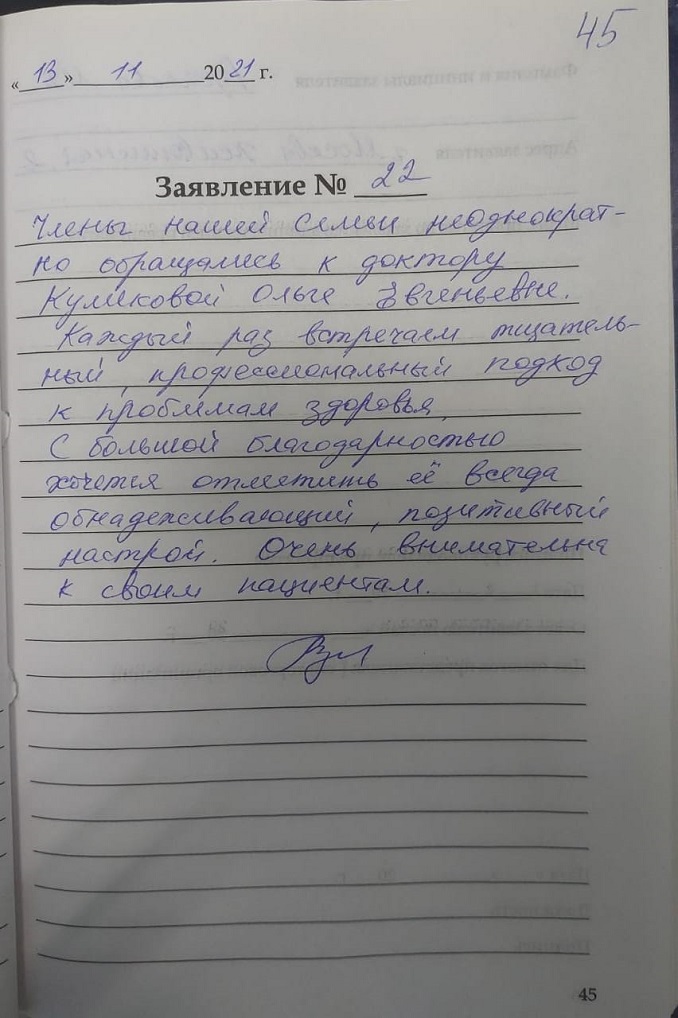 45
«13» 11 2021 г.
Заявление № 22
Члены нашей семьи неоднократ-
но обращались к доктору
Куликовой Ольге Евгеньевне.
Каждый раз встречаем тщатель-
ный, профессиональный подход
к проблемам здоровья.
С большой благодарностью
хочется отметить её всегда
обнадеживающий, позитивный
настрой. Очень внимательна
к своим пациентам.
45